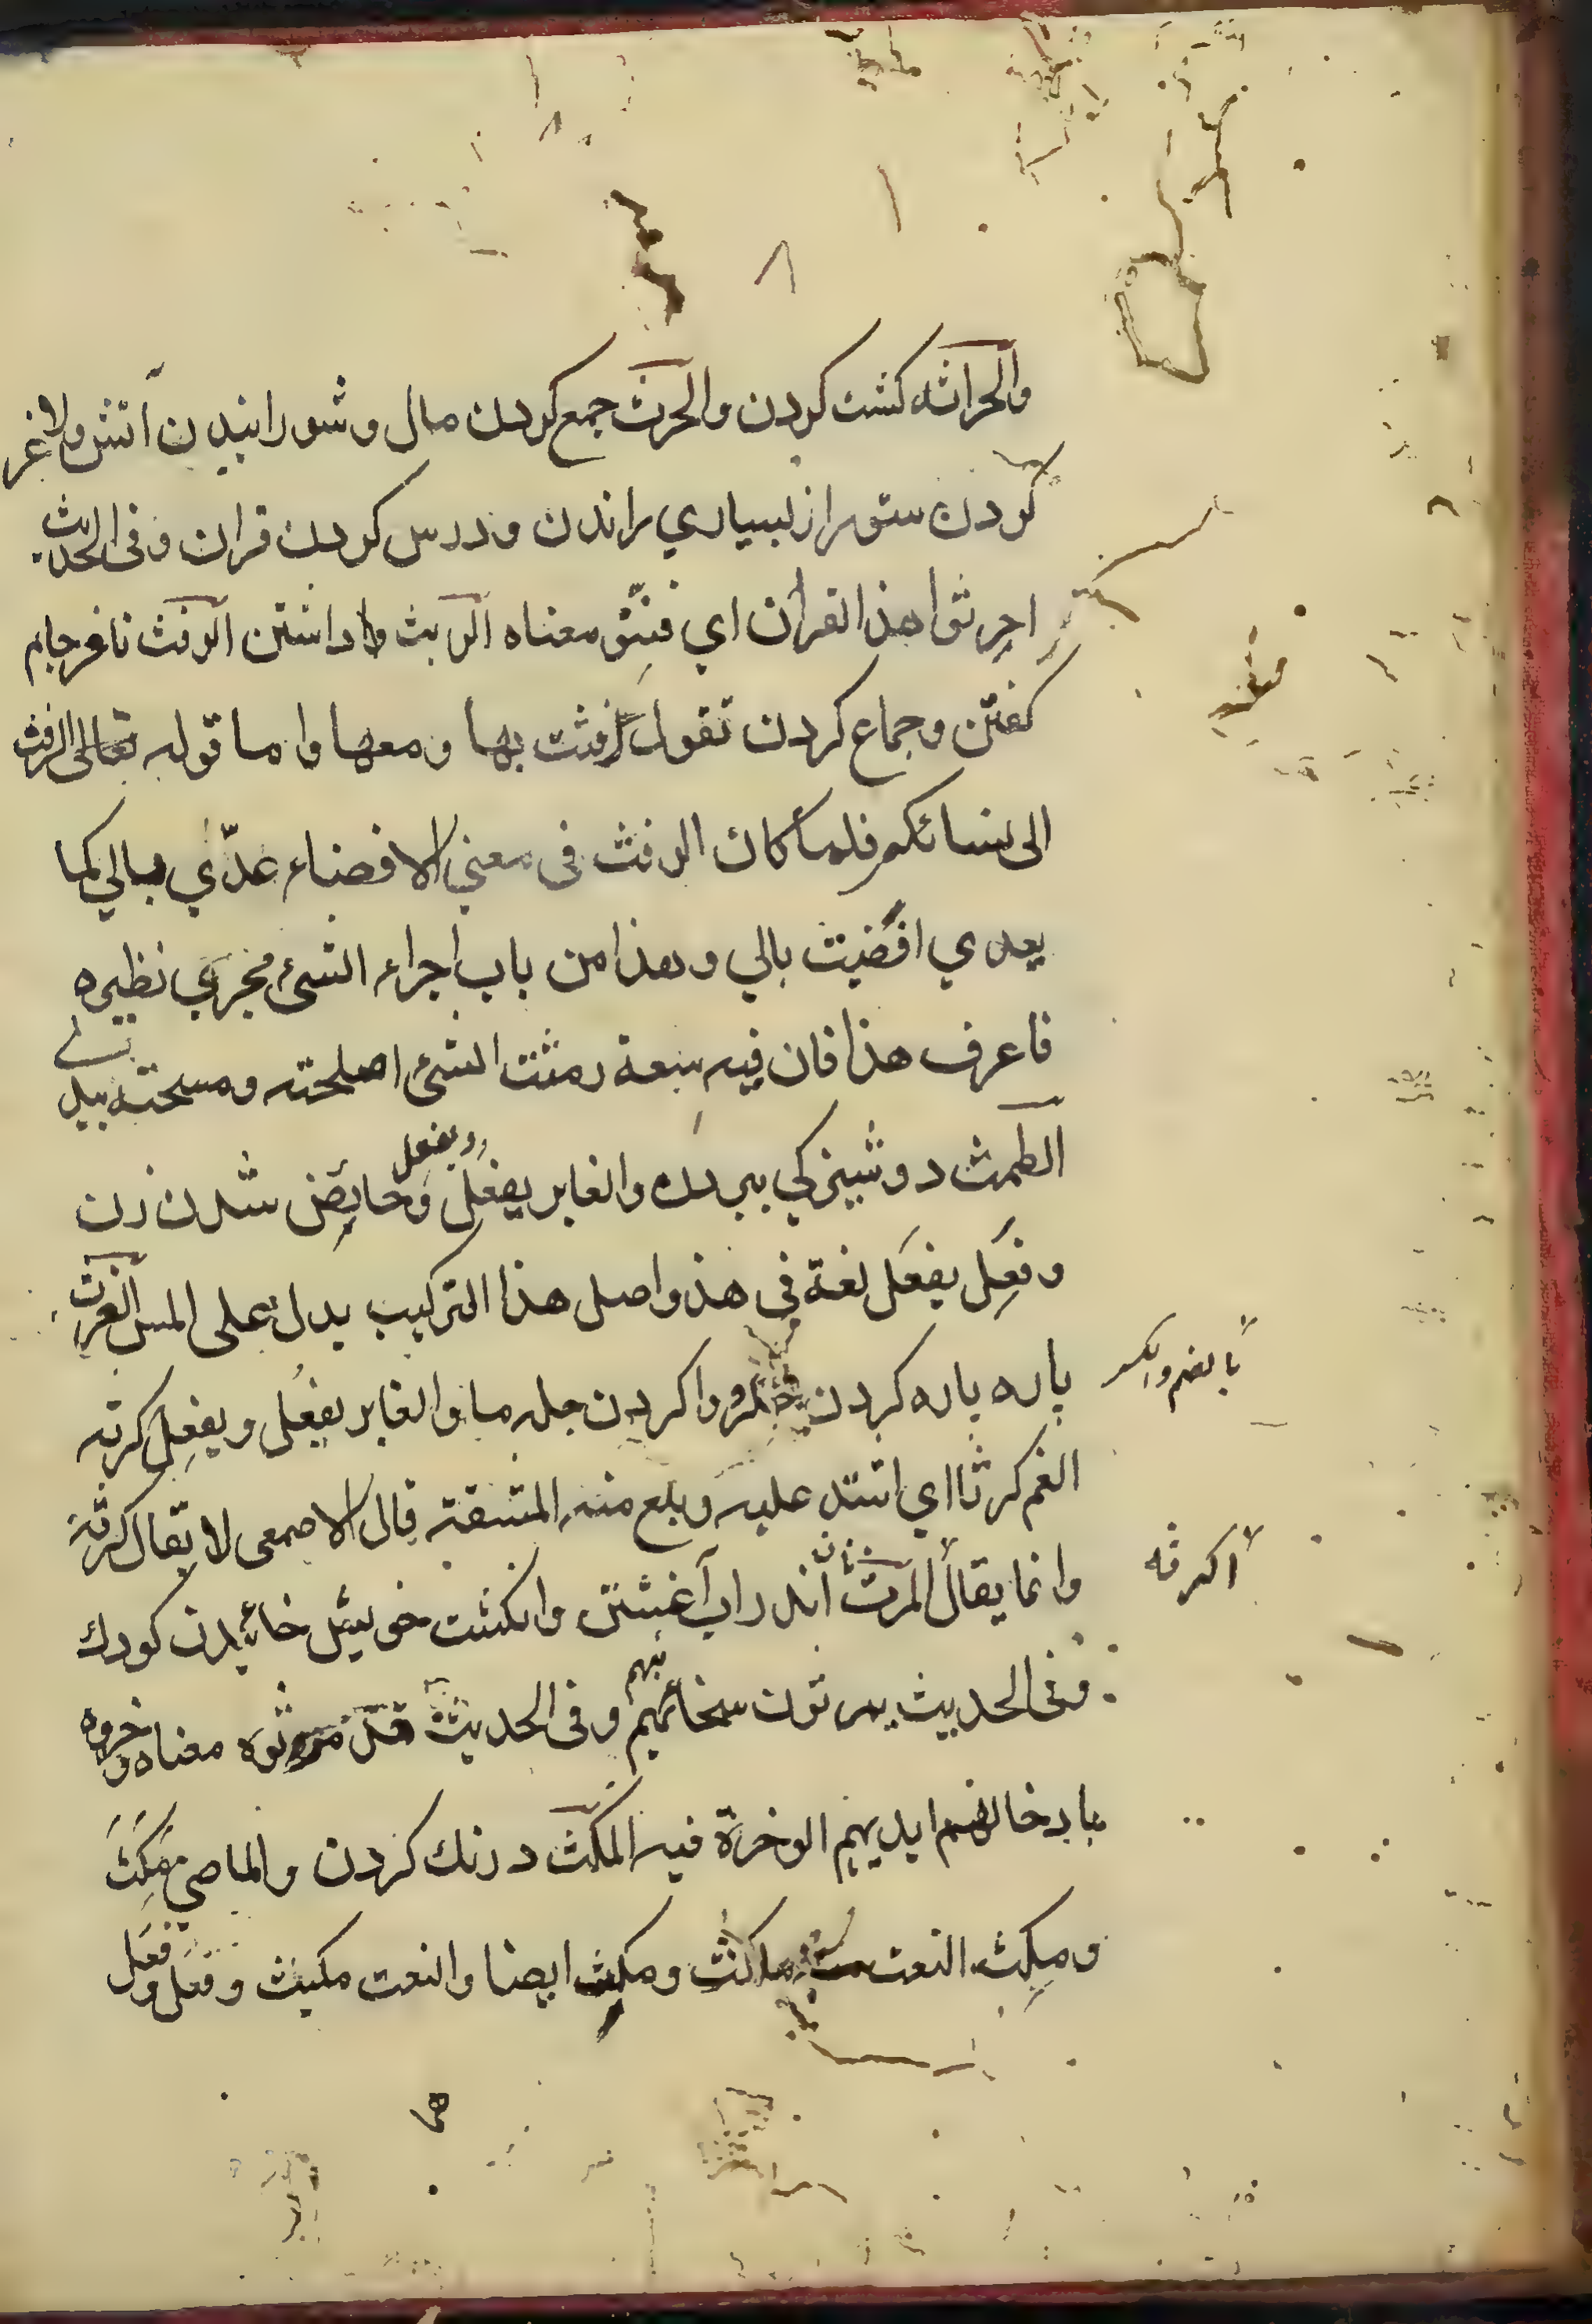 والحراثه كشت كردن والحرث جمع كردن مال وشورانيدن آتش ولاغر
كردن ستور از بسياري راندن ودرس كردن قران وفى الحديث
احرثوا هذا القرأن اي فتشو معناه الربث وا داشتن الرفث نافرجام
كفتن وجماع كردن تقول رفثت بها ومعها واما قوله تعالى الرفث
الى نسائكم فلما كان الرفث فى معنى الافضاء عدّي بالي كما
يعدي افضيت بالي وهذا من باب اجراء الشئ مجري نظيره
فاعرف هذا فان فيه سعة رمثت الشئ اصلحته ومسحته بيدي
الطمث دوشيزكي ببردن والغابر يفعل ويفعل وحايض شدن زن
وفعِل يفعَل لغة فى هذ واصل هذا التركيب يدل على المس الفرث
پاره پاره كردن جكر وا كردن جله ما والغابر يفعُل ويفعِل كرثه
بالضم والكسر
الغم كرثا اي اشتد عليه وبلع منه المشقة قال الاصمعى لا يقال كرثه
وانما يقال المرث اندر اب آغشتن وانكشت خويش خائيدن كودك
اكرثه
وفى الحديث يمرثون سخائهم وفى الحديث مرثوه معناه وخروه
بادخالهم ايديهم الوخرة فيه المكث درنك كردن والماضي مكَث
ومكِث النعت ماكث ومكث ايضا والنعت مكيث وفعَل وفعل
هما